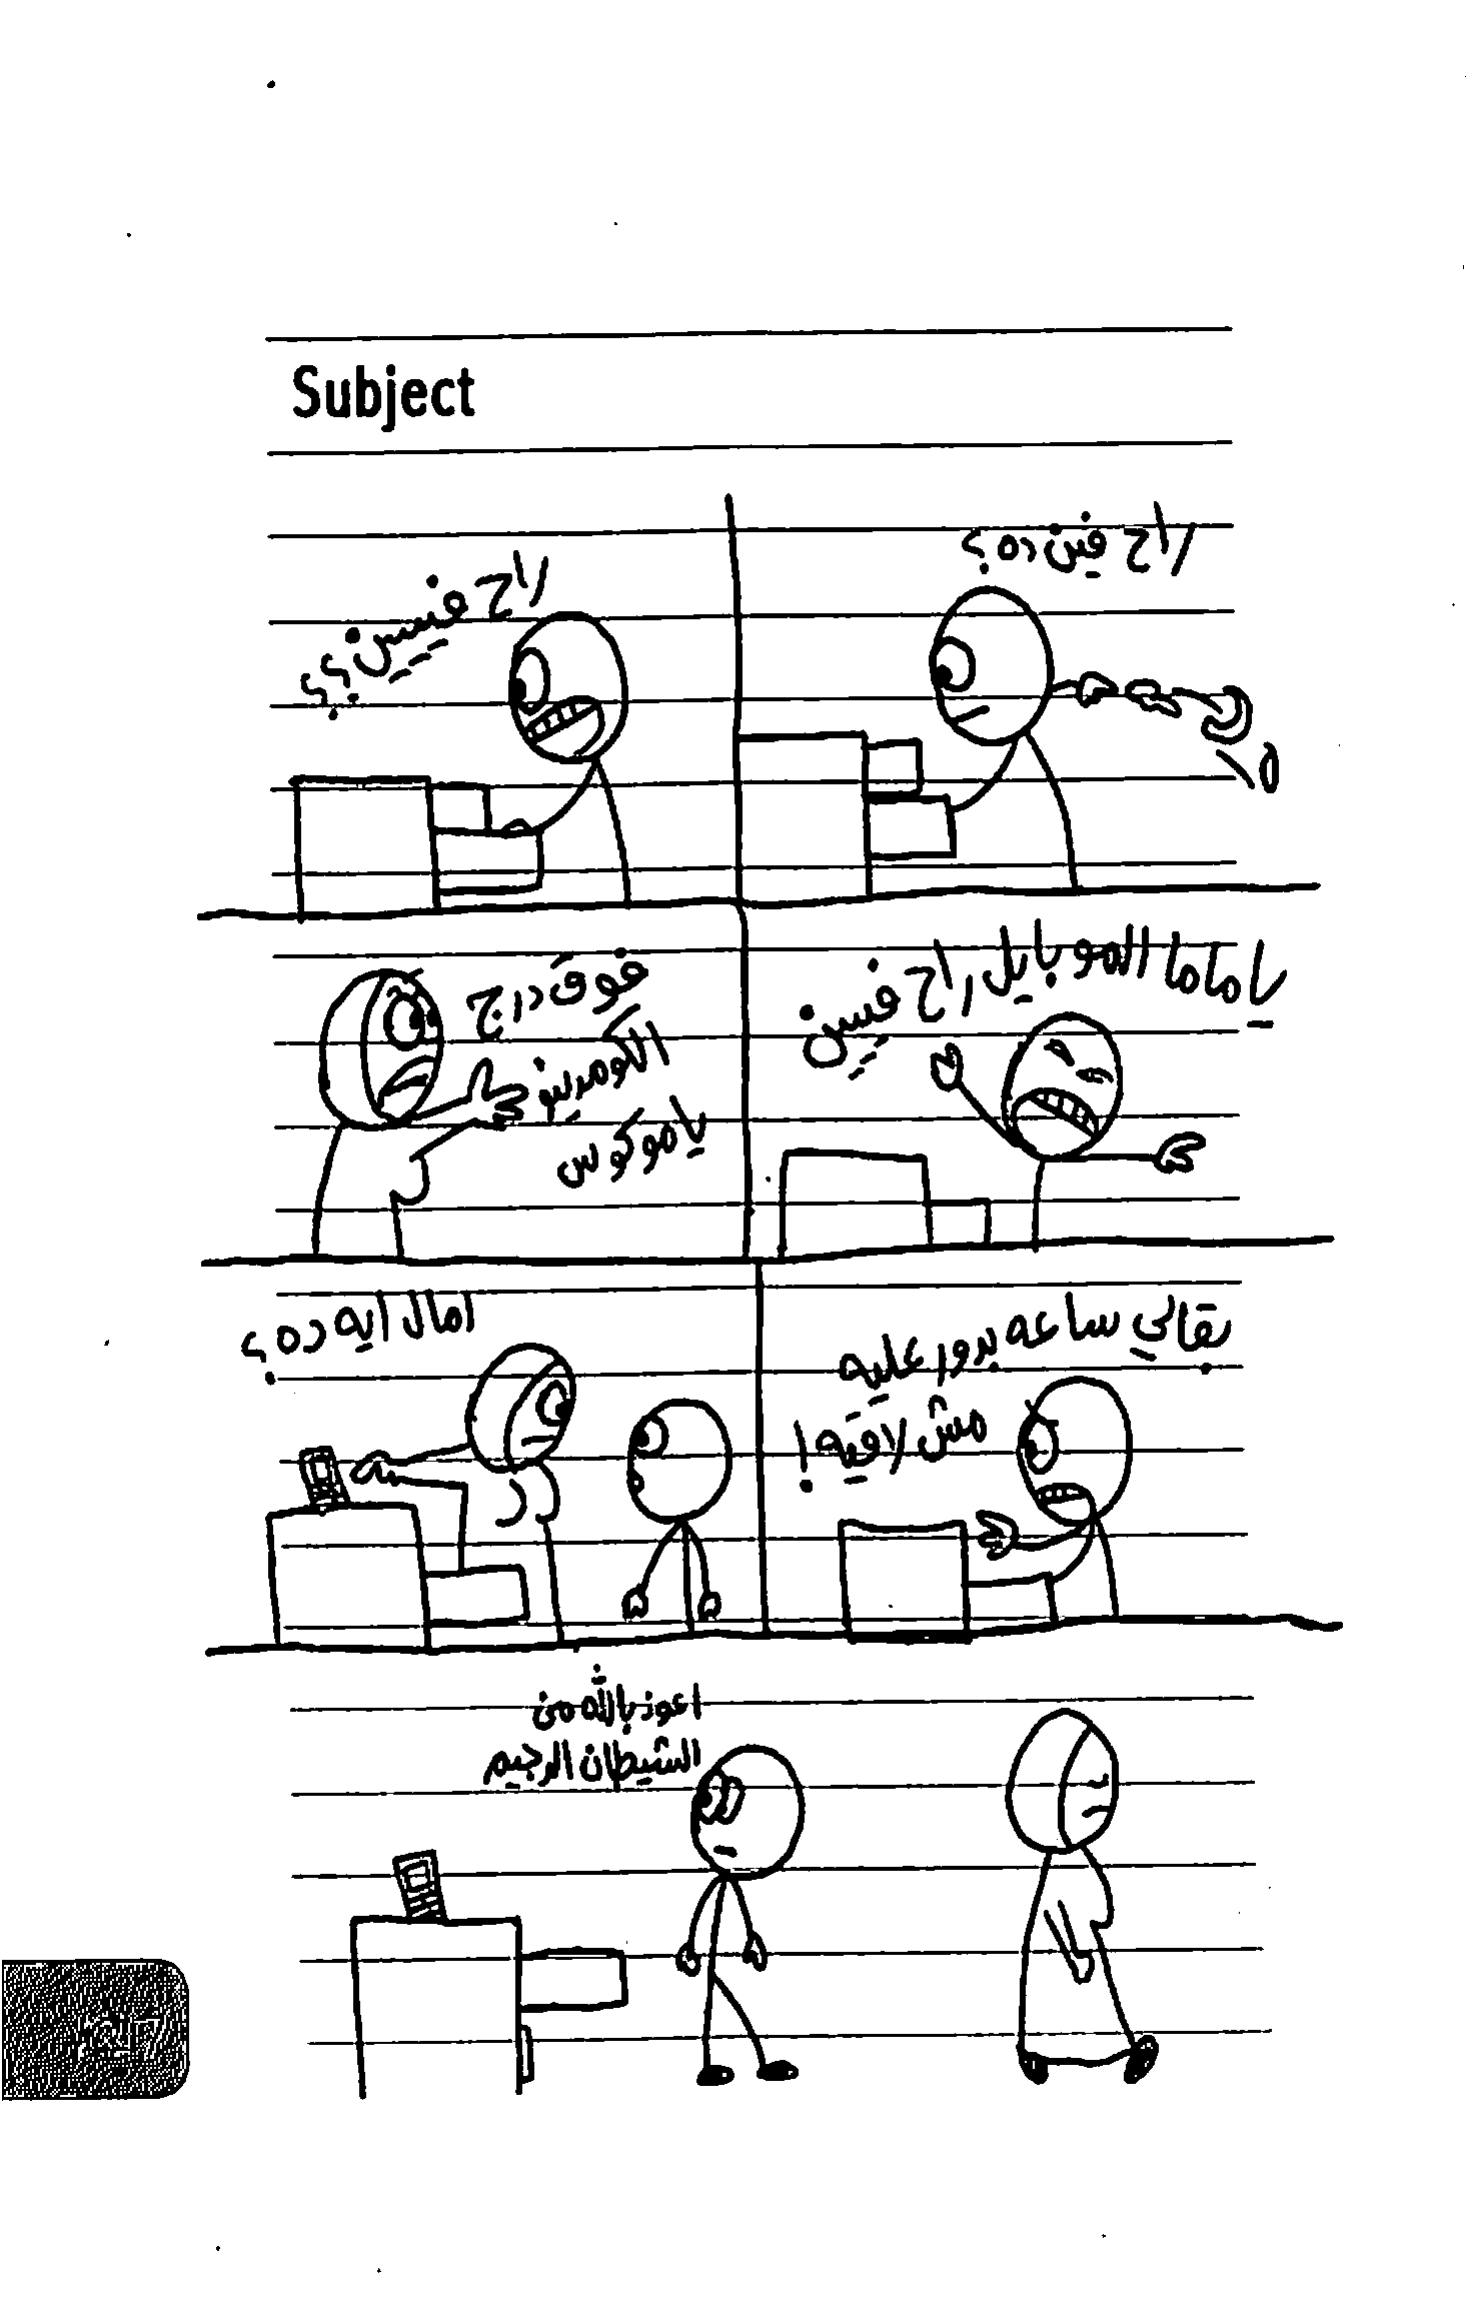 Subject
راح فين ده؟
راح فييين؟؟
ياماما الموبايل راح فيين
فوق درج
الكومدينو
ياموكوس
بقالي ساعه بدور عليه
مش لاقيه!
امال ايه ده؟
اعوذ بالله من
الشيطان الرجيم